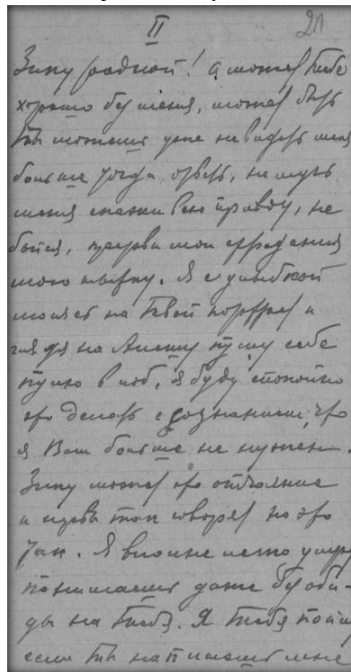 II 21
Зину родной! а может тебе
хорошо без меня, может быть
ты можешь уже не видеть меня
больше тогда ответь, не мучь
меня скажи всю правду, не
бойся, прерви мои страдания
мою пытку. Я с улыбкой
на твой портрет и
глядя на пущу себе
пулю в лоб, я буду спокойно
это делать с сознанием, что
я Вам больше не нужен.
Зину может это отчаяние
и нервы так говорят но это
так. Я вполне легко умру
понимаешь даже без оби-
ды на тебя. Я тебя пойму
если ты напишешь мне